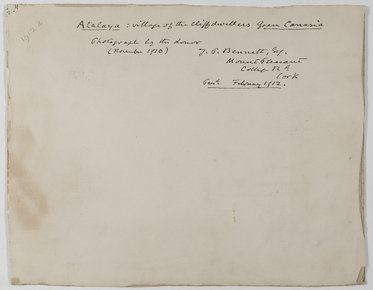 Atalaya : village of the cliff dwellers Gran Canaria
Photograph by the donor
(November 1910) J. P. Bennett, Esq.
Mount Pleasant
College Rd
Cork
February 1912.